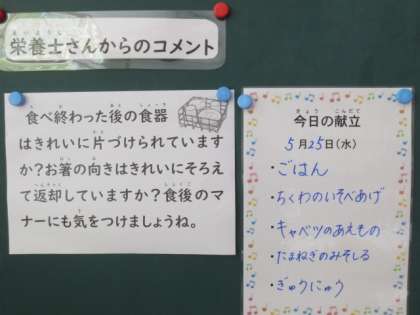 栄養士さんからのコメント
食べ終わった後の食器
はきれいに片づけられています
か?お箸の向きはきれいにそろえ
て返却していますか?食後のマ
ナーにも気をつけましょうね。
今日の献立
5月25日(水)
・ごはん
・ちくわのいそべあげ
・キャベツのあえもの
・たまねぎのみそしる
・ぎゅうにゅう